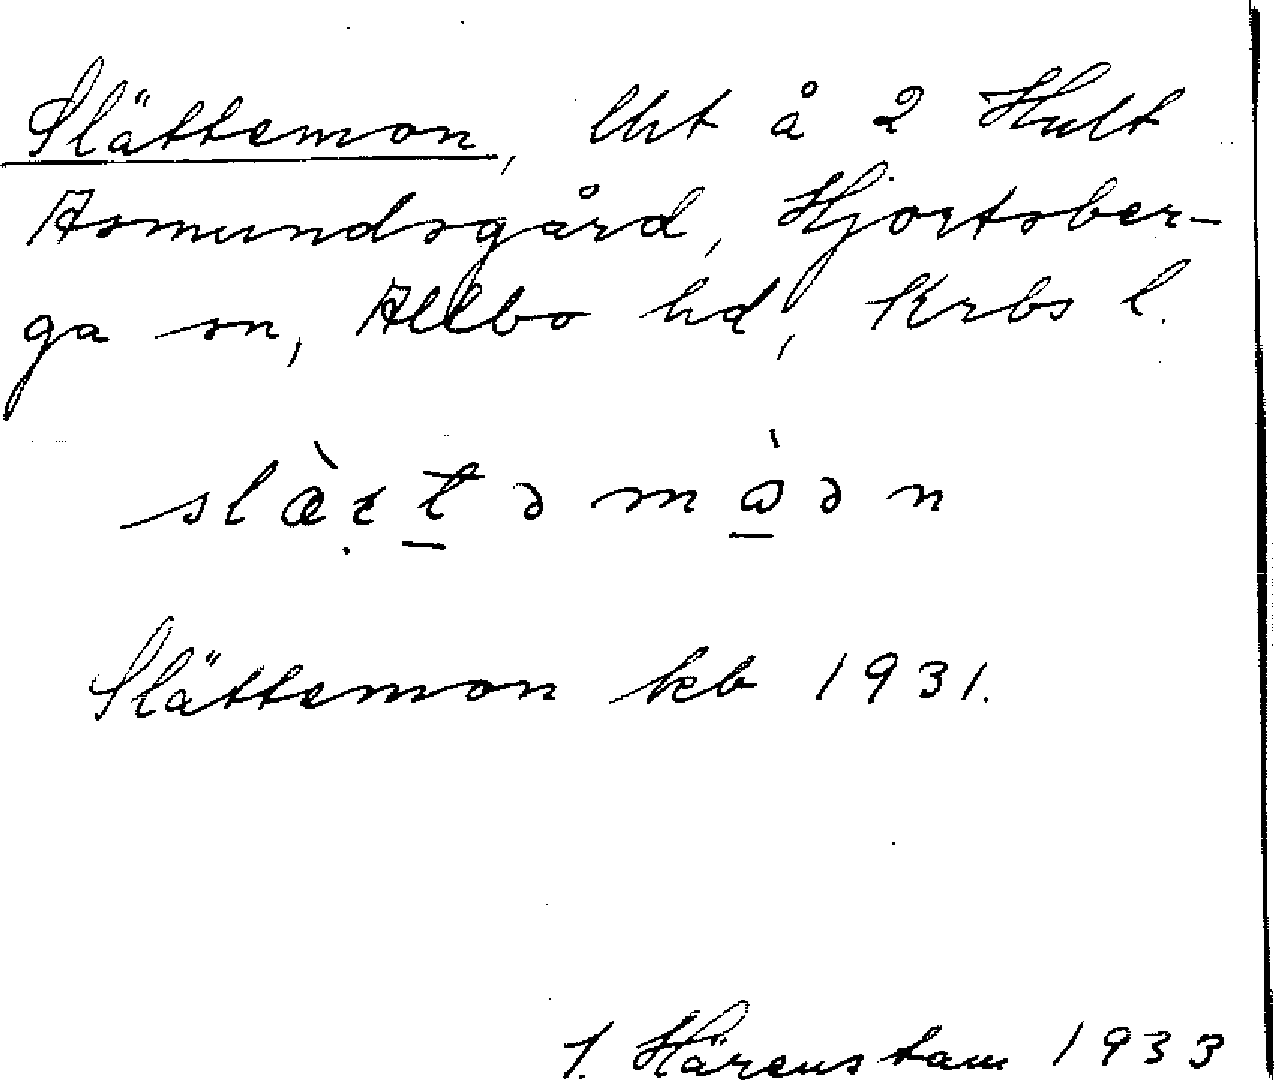 Slättemon, lht å 2 Hult
Asmundsgård, Hjortsber-
ga sn, Allbo hd, Krbs l.
Slättemon kb 1931.
J. Härenstam 1933